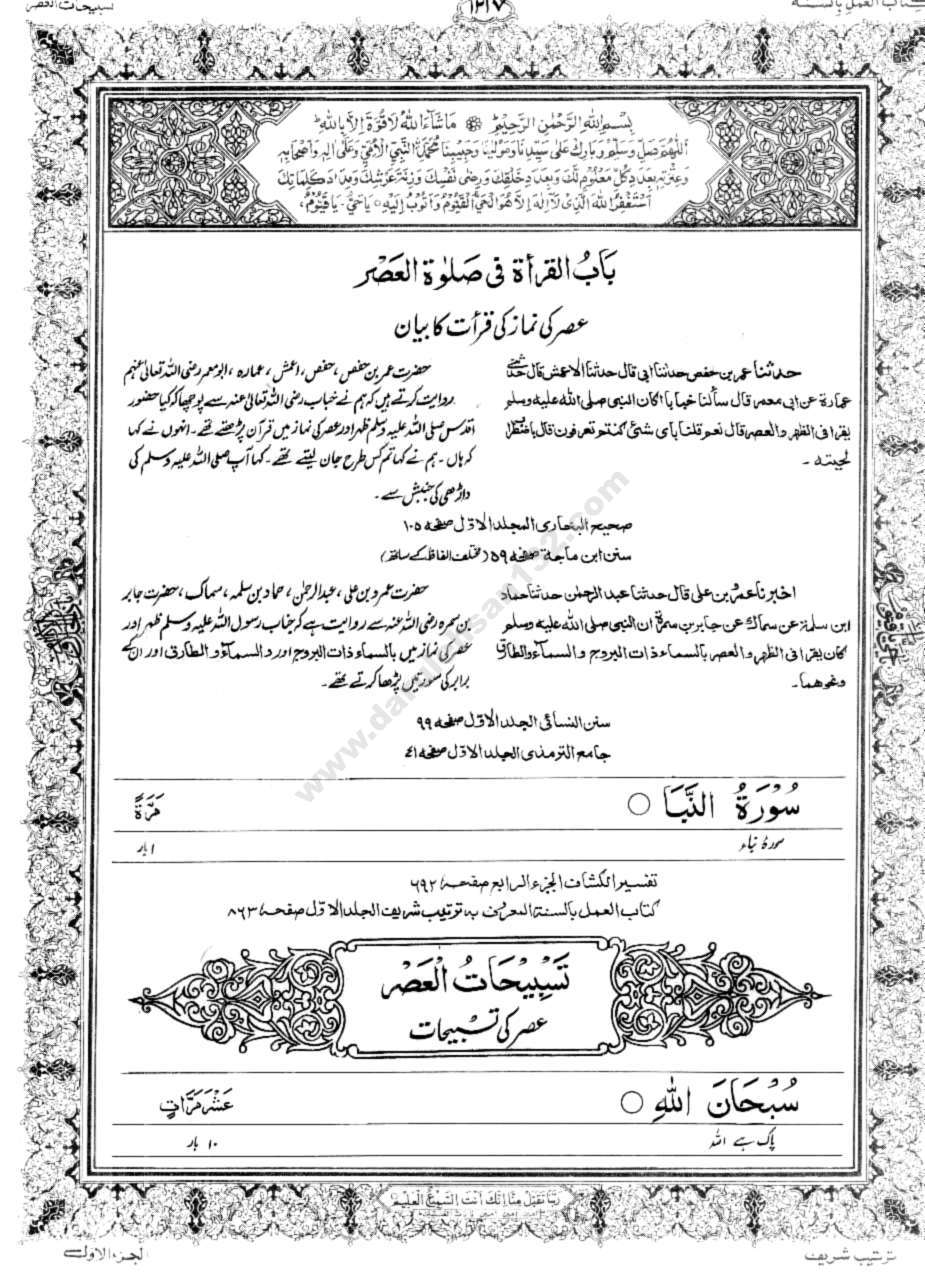 کتاب العمل بالسنۃ
۱۲۱۷
تسبیحات العصر
بِسْمِ اللهِ الرَّحْمٰنِ الرَّحِيْمِ مَا شَآءَ اللهُ لَا قُوَّةَ اِلَّا بِاللهِ
اَللّٰهُمَّ صَلِّ وَسَلِّمْ وَبَارِكْ عَلٰى سَيِّدِنَا وَمَوْلٰينَا وَحَبِيْبِنَا مُحَمَّدِ ۨ النَّبِيِّ الْاُمِّيِّ وَعَلٰى اٰلِهٖ وَاَصْحَابِهٖ
وَعِتْرَتِهٖ بِعَدَدِ كُلِّ مَعْلُوْمٍ لَّكَ وَبِعَدَدِ خَلْقِكَ وَرِضٰى نَفْسِكَ وَزِنَةِ عَرْشِكَ وَمِدَادِ كَلِمَاتِكَ
اَسْتَغْفِرُ اللهَ الَّذِىْ لَآ اِلٰهَ اِلَّا هُوَ الْحَىُّ الْقَيُّوْمُ وَاَتُوْبُ اِلَيْهِ يَا حَىُّ يَا قَيُّوْمُ
بَابُ القرأة فى صَلٰوة العَصْر
عصر کی نماز کی قرأت کا بیان
حدثنا عمر بن حفص حدثنا ابى قال حدثنا الاعمش قال حدثنى
عمارة عن ابى معمر قال سألنا خبابا اكان النبى صلى الله عليه وسلم
يقرأ فى الظهر والعصر قال نعم قلنا بأى شئى كنتم تعرفون قال باضطراب
لحيته ۔
حضرت عمر بن حفص، حفص، اعمش، عمارہ، ابو معمر رضی اللہ تعالیٰ عنہم
روایت کرتے ہیں کہ ہم نے خباب رضی اللہ تعالیٰ عنہ سے پوچھا کہ کیا حضور
اقدس صلی اللہ علیہ وسلم ظہر اور عصر کی نماز میں قرآن پڑھتے تھے۔ انہوں نے کہا
کہ ہاں۔ ہم نے کہا تم کس طرح جان لیتے تھے۔ کہا آپ صلی اللہ علیہ وسلم کی
داڑھی کی جنبش سے۔
صحيح البخارى المجلد الاوّل صفحه ۱۰۵
سنن ابن ماجة صفحه ۵۹ (مختلف الفاظ کے ساتھ)
اخبرنا عمرو بن على قال حدثنا عبد الرحمٰن حدثنا حماد
ابن سلمة عن سماك عن جابر بن سمرة ان النبى صلى الله عليه وسلم
كان يقرأ فى الظهر والعصر بالسماء ذات البروج والسماء والطارق
ونحوهما۔
حضرت عمرو بن علی، عبدالرحمٰن، حماد بن سلمہ، سماک، حضرت جابر
بن سمرہ رضی اللہ عنہ سے روایت ہے کہ جناب رسول اللہ صلی اللہ علیہ وسلم ظہر اور
عصر کی نماز میں بالسماء ذات البروج اور والسماء والطارق اور ان کے
برابر کی سورتیں پڑھا کرتے تھے۔
سنن النسائى الجلد الاوّل صفحه ۹۹
جامع الترمذى الجلد الاوّل صفحه ۴۱
سُوْرَةُ النَّبَا مَرَّةً
سورۂ نباء ۱ بار
تفسير الكشاف الجزء الرابع صفحه ۶۹۲
كتاب العمل بالسنة المعروف به ترتيب شريف الجلد الاوّل صفحه ۸۶۳
تَسْبِيْحَاتُ الْعَصْر
عصر کی تسبیحات
سُبْحَانَ اللهِ عَشْرَ مَرَّاتٍ
پاک ہے اللہ ۱۰ بار
رَبَّنَا تَقَبَّلْ مِنَّا اِنَّكَ اَنْتَ السَّمِيْعُ الْعَلِيْمُ
ترتیب شریف
الجزء الاوّل